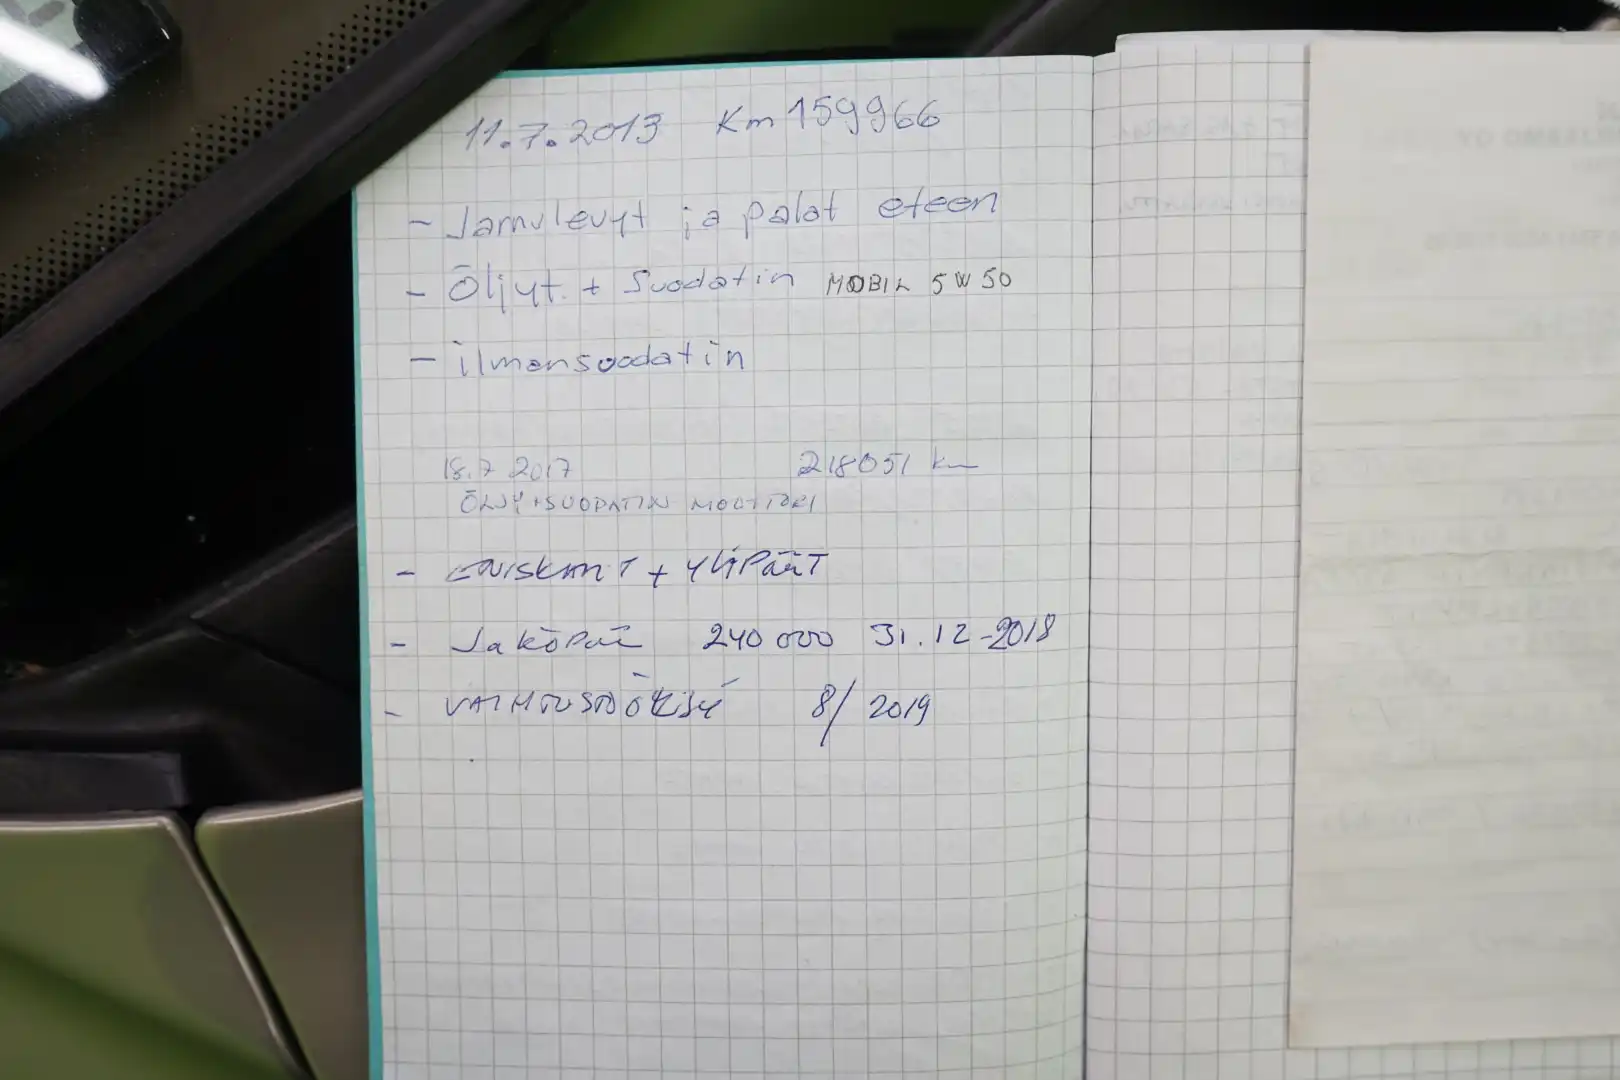 11.7.2013 Km 159966
- Jarrulevyt ja palat eteen
- Öljyt + Suodatin MOBIL 5W50
- ilmansuodatin
18.7 2017 218051 km
ÖLJY+SUODATIN MOOTTORI
- + YLÄPÄÄT
- Jakopää 240 000 31.12-2018
- 8/2019